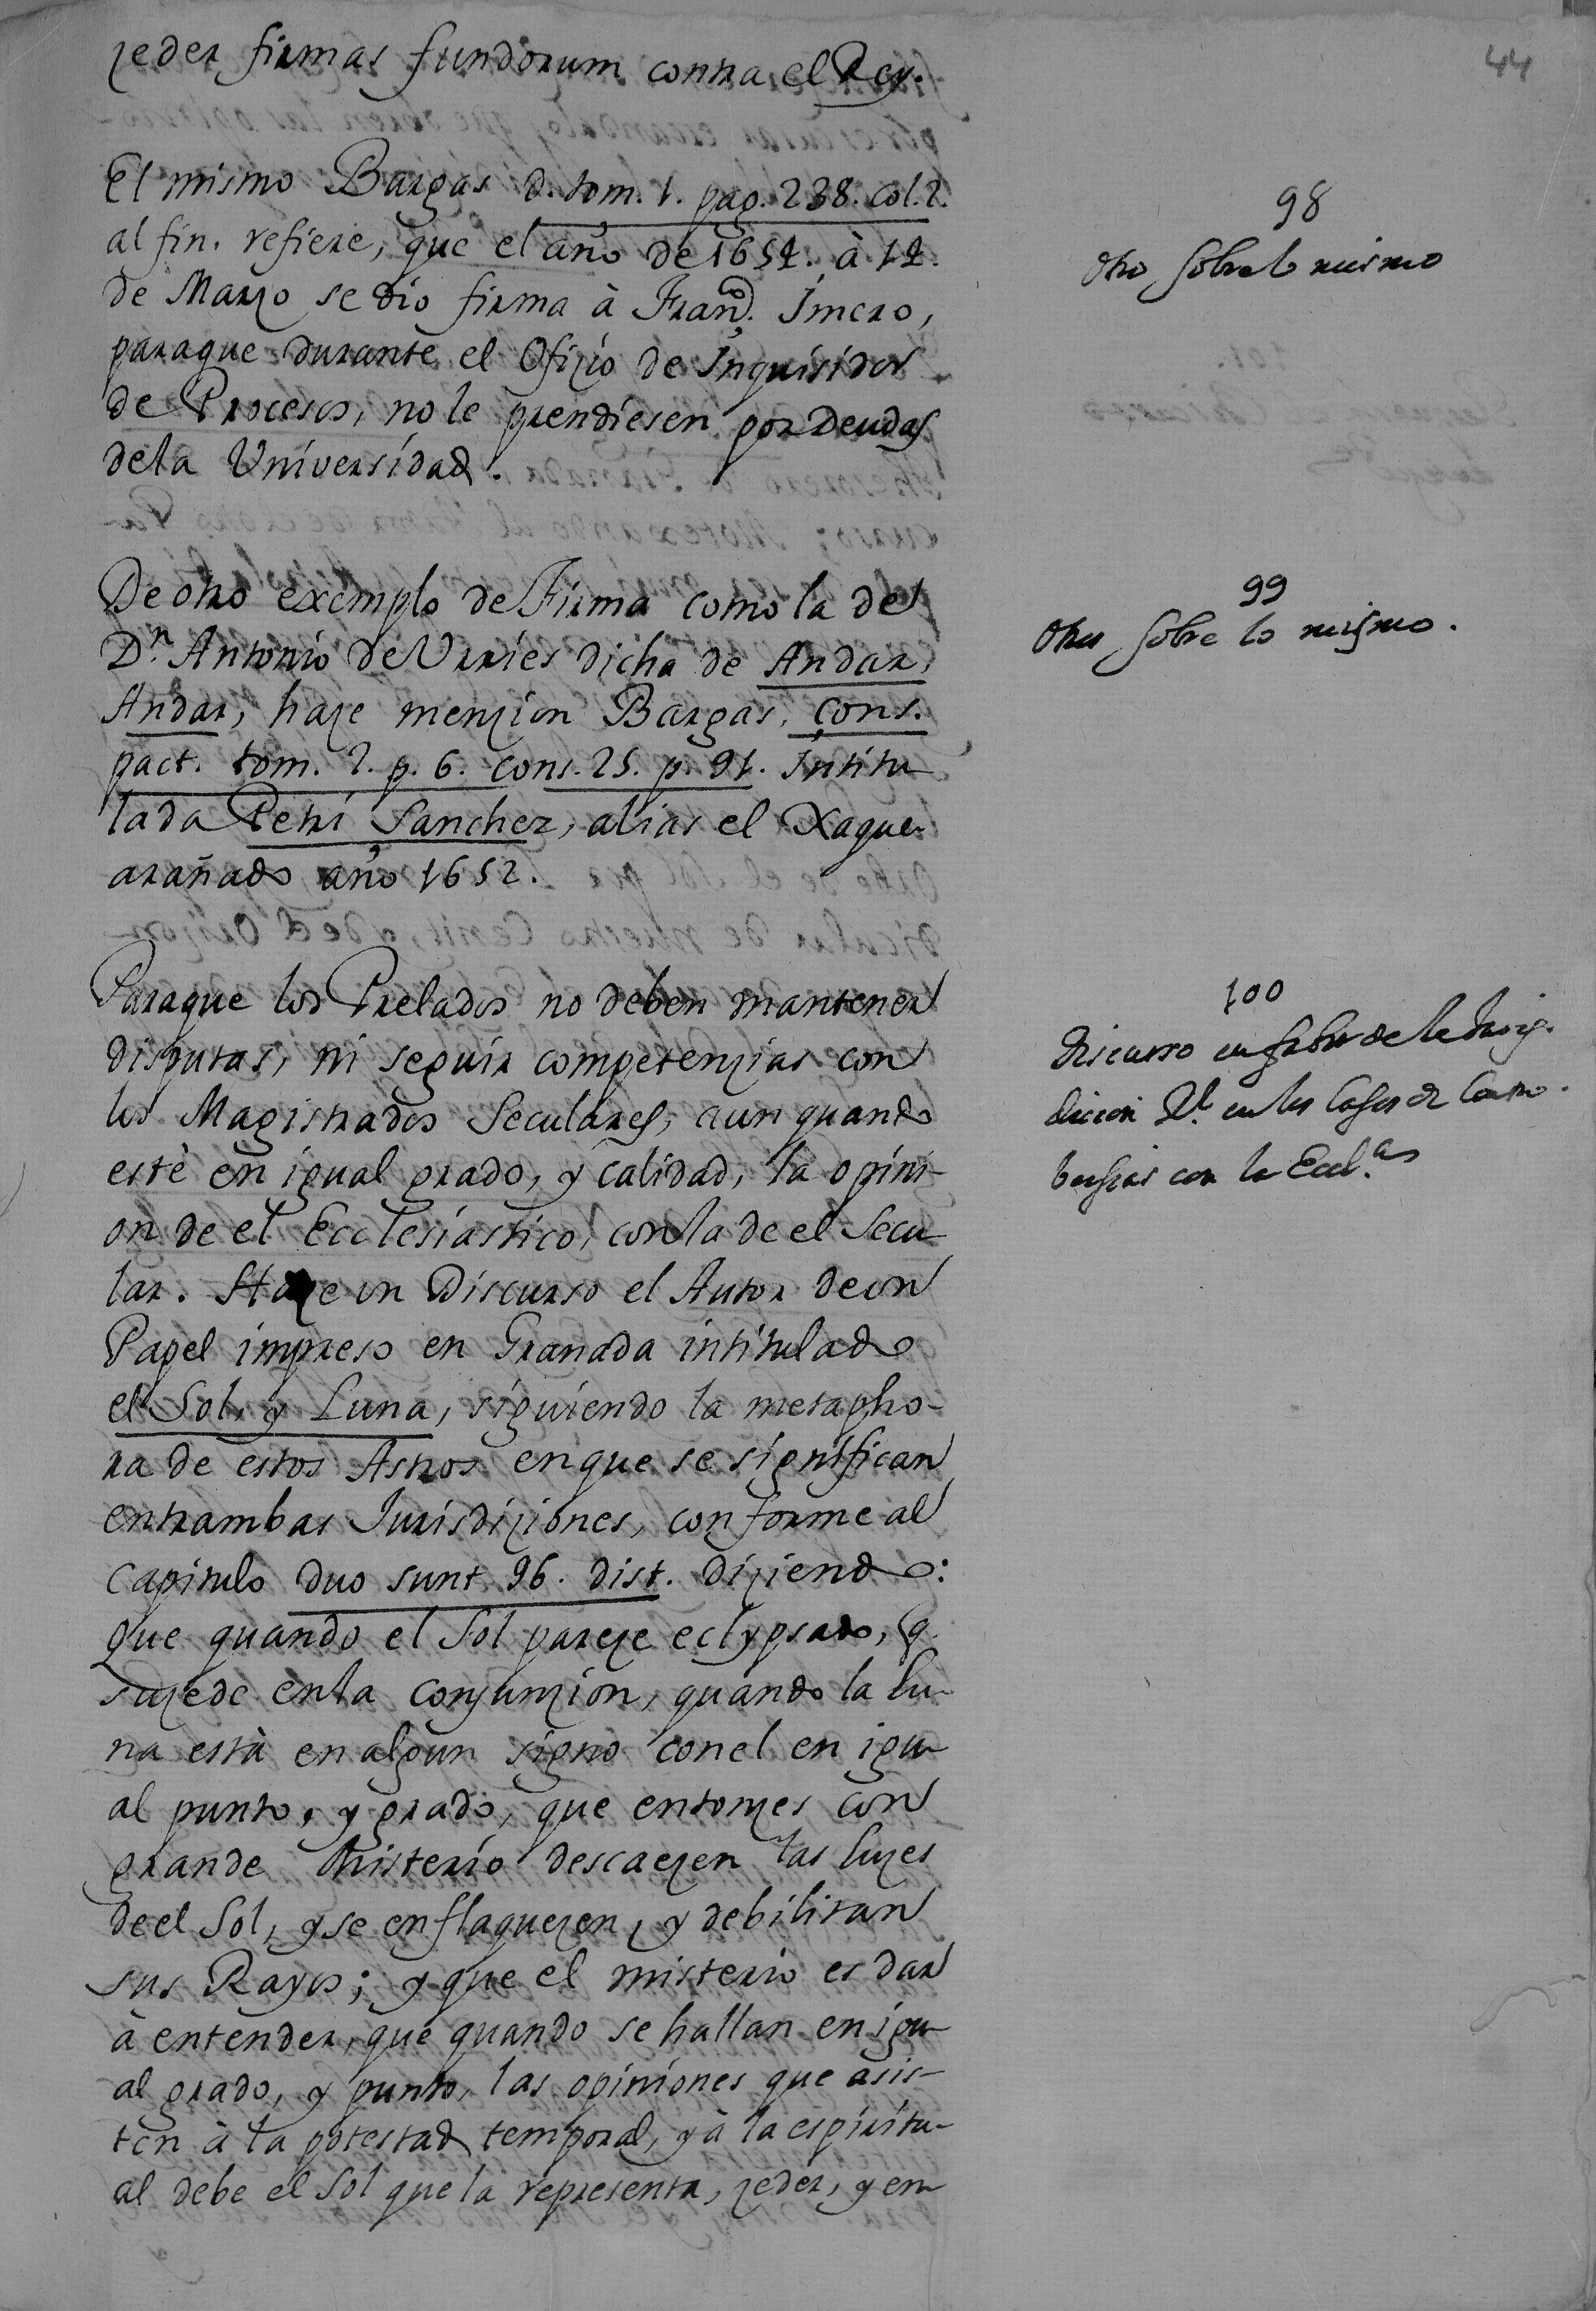 44
zeder firmas fundorum contra el Rey.
El mismo Bargas d. tom. 1. pag. 238. col. 2.
al fin. refiere, que el año de 1652. à 12.
de Marzo se dio firma à Fran.co
paraque durante el Ofizio de Inquisidor
de Procesos, no le prendiesen por Deudas
dela Universidad.
98
Otro sobre lo mismo
De otro exemplo de Firma como la del
D.n Antonio de Urries dicha de Andar,
Andar, haze menzion Bargas, cons.
pact. tom. 2. p. 6. cons. 25. p. 91. intitu-
lada Petri Sanchez, alias el Xaque-
arañado año 1652.
99
Otra sobre lo mismo.
Paraque los Prelados no deben mantener
disputas, ni seguir competenzias con
los Magistrados Seculares, aun quando
estè en igual grado, y calidad, la opini-
on de el Ecclesiastico, con la de el Secu-
lar. Haze un Discurso el Autor de un
Papel impreso en Granada intitulado
el Sol, y Luna, siguiendo la metapho-
ra de estos Astros en que se significan
entrambas Jurisdiziones, conforme al
Capitulo duo sunt 96. dist. diziendo:
que quando el Sol pareze eclypsado, q.
suzede enla Conjunzion, quando la Lu-
na està en algun signo con el en igu-
al punto, y grado, que entonzes con
grande Misterio descaezen las luzes
de el Sol, y se enflaquezen, y debilitan
sus Rayos; y que el misterio es dar
à entender, que quando se hallan en igu-
al grado, y punto, las opiniones que asis-
ten à la potestad temporal, y à la espiritu-
al debe el Sol que la representa, zeder, y en-
100
Discurso en favor de la Juris-
diccion R.l en los Casos de Contro-
bersias con la Ecl.ca